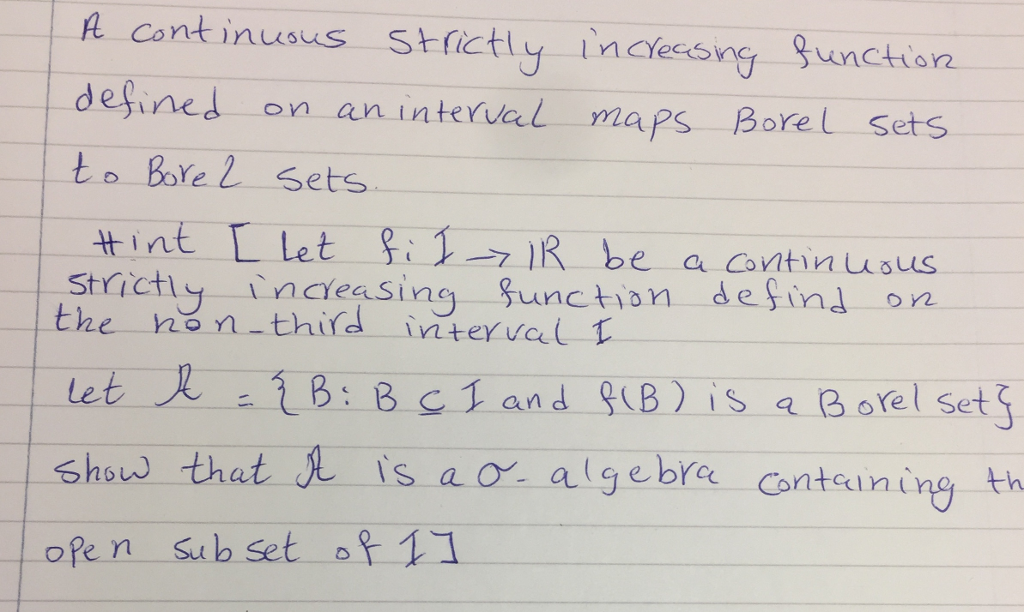 A continuous strictly increasing function
defined on an interval maps Borel sets
to Borel sets.
Hint [ Let f: I → IR be a continuous
strictly increasing function defind on
the non-third interval I
let A = { B : B ⊆ I and f(B) is a Borel set}
show that A is a σ- algebra containing th
open subset of I ]